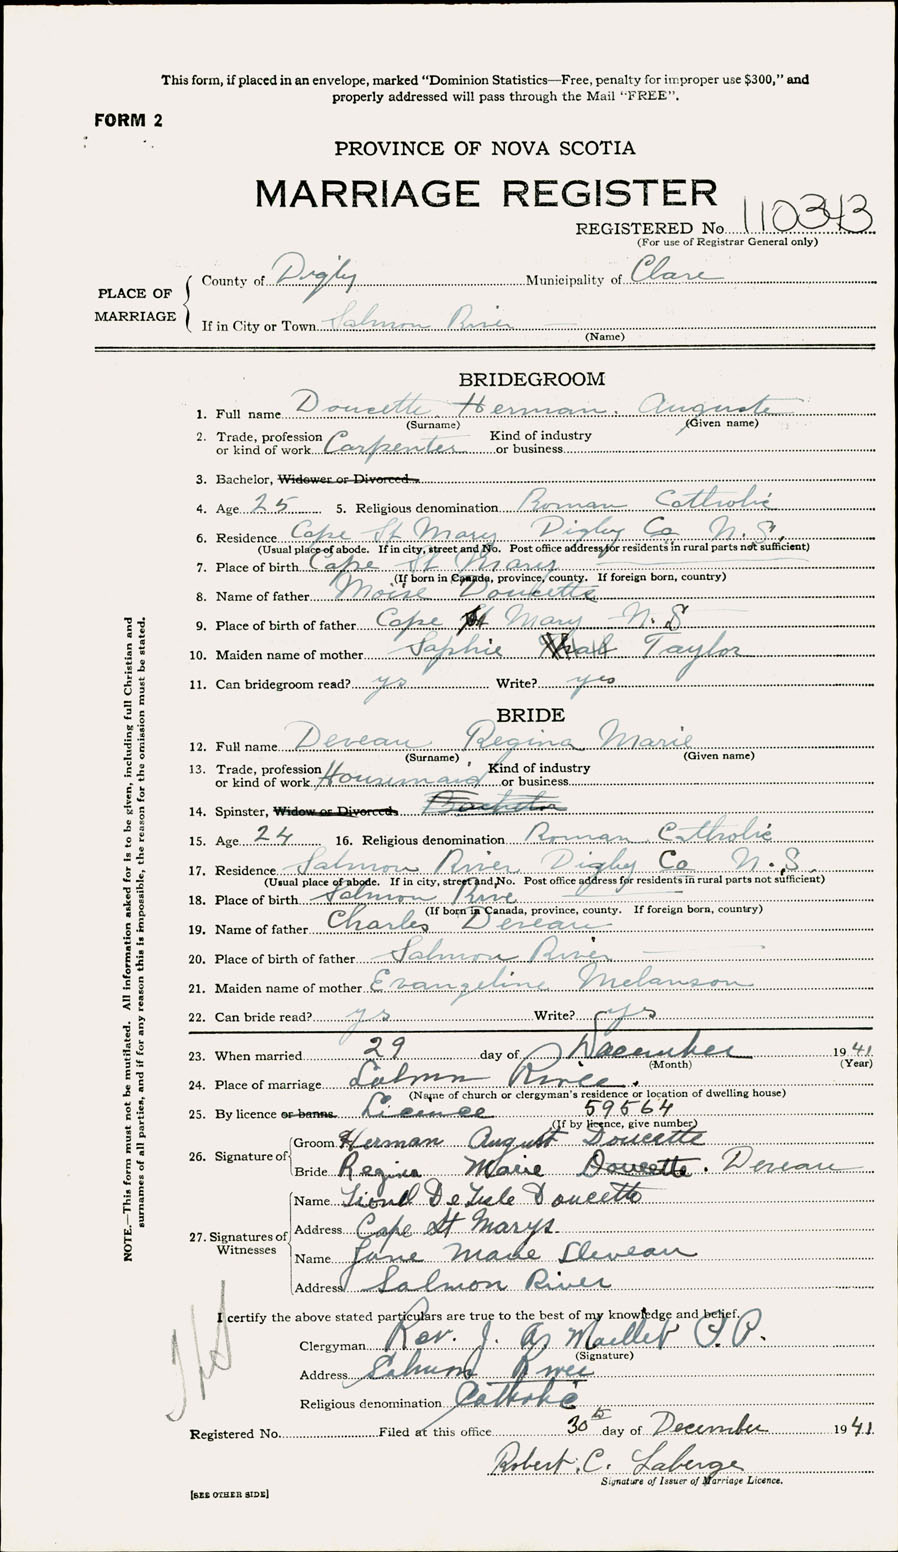 This form, if placed in an envelope, marked “Dominion Statistics—Free, penalty for improper use $300,” and
properly addressed will pass through the Mail “FREE”.
FORM 2
PROVINCE OF NOVA SCOTIA
MARRIAGE REGISTER
REGISTERED No. 110343
(For use of Registrar General only)
PLACE OF MARRIAGE
County of Digby Municipality of Clare
If in City or Town Salmon River
(Name)
BRIDEGROOM
1. Full name Doucette Herman. Auguste
(Surname) (Given name)
2. Trade, profession or kind of work Carpenter Kind of industry or business
3. Bachelor, Widower or Divorced
4. Age 25 5. Religious denomination Roman Catholic
6. Residence Cape St Mary Digby Co N.S.
(Usual place of abode. If in city, street and No. Post office address for residents in rural parts not sufficient)
7. Place of birth Cape St Mary
(If born in Canada, province, county. If foreign born, country)
8. Name of father Moise Doucette
9. Place of birth of father Cape St Mary N.S
10. Maiden name of mother Saphie Taylor
11. Can bridegroom read? ys Write? yes
BRIDE
12. Full name Deveau Regina Marie
(Surname) (Given name)
13. Trade, profession or kind of work Housemaid Kind of industry or business
14. Spinster, Widow or Divorced Bachelor
15. Age 24 16. Religious denomination Roman Catholic
17. Residence Salmon River Digby Co N.S.
(Usual place of abode. If in city, street and No. Post office address for residents in rural parts not sufficient)
18. Place of birth Salmon Rive
(If born in Canada, province, county. If foreign born, country)
19. Name of father Charles Deveau
20. Place of birth of father Salmon River
21. Maiden name of mother Evangeline Melanson
22. Can bride read? ys Write? yes
23. When married 29 day of December 1941
(Month) (Year)
24. Place of marriage Salmon River.
(Name of church or clergyman's residence or location of dwelling house)
25. By licence or banns Licence 59564
(If by licence, give number)
26. Signature of Groom Herman August Doucette
Bride Regina Marie Doucette. Deveau
27. Signatures of Witnesses
Name Lionel DeLisle Doucette
Address Cape St Marys
Name June Marie Deveau
Address Salmon River
I certify the above stated particulars are true to the best of my knowledge and belief.
Clergyman Rev. J. A. Maillet P.P.
(Signature)
Address Salmon River
Religious denomination Catholic
Registered No. Filed at this office 30th day of December 1941
Robert. C. Laberge
Signature of Issuer of Marriage Licence.
[SEE OTHER SIDE]
NOTE.—This form must not be mutilated. All information asked for is to be given, including full Christian and
surnames of all parties, and if for any reason this is impossible, the reason for the omission must be stated.